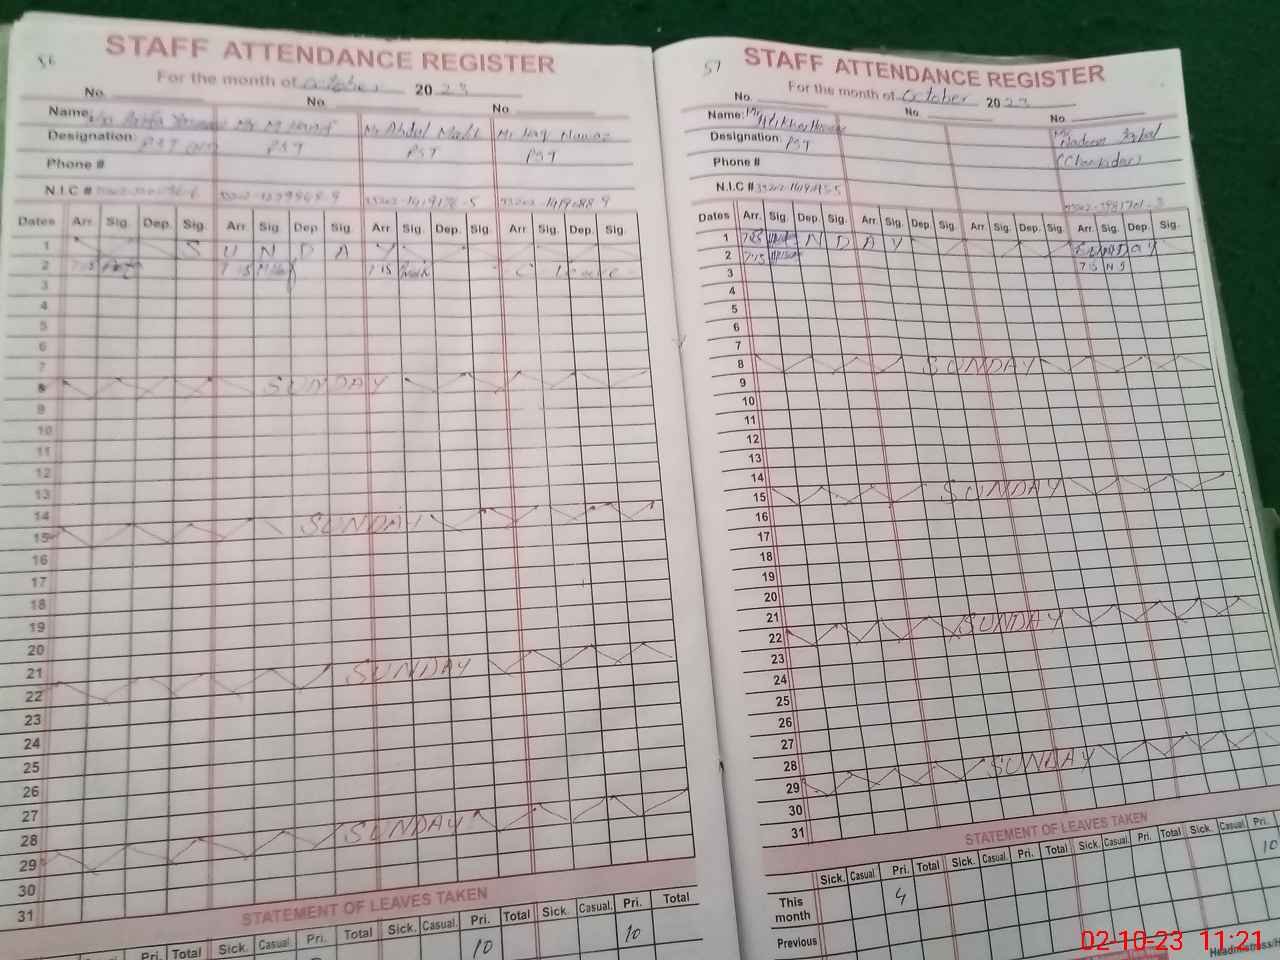 56
STAFF ATTENDANCE REGISTER
For the month of October 2023
No. No. No.
Name:
Mr Abdul Malik
Mr Haq Nawaz
Designation: PST PST PST PST
Phone #
N.I.C #
Dates Arr. Sig. Dep. Sig. Arr. Sig. Dep. Sig. Arr. Sig. Dep. Sig. Arr. Sig. Dep. Sig.
1 S U N D A Y
2 7:15 7:15 7:15 C Leave
3
4
5
6
7
8 SUNDAY
9
10
11
12
13
14
15 SUNDAY
16
17
18
19
20
21
22 SUNDAY
23
24
25
26
27
28
29 SUNDAY
30
31
STATEMENT OF LEAVES TAKEN
Pri. Total Sick. Casual. Pri. Total Sick. Casual. Pri. Total Sick. Casual. Pri. Total
10 10
57
STAFF ATTENDANCE REGISTER
For the month of October 2023
No. No. No.
Name:
Designation: PST
(Chowkidar)
Phone #
N.I.C #
Dates Arr. Sig. Dep. Sig. Arr. Sig. Dep. Sig. Arr. Sig. Dep. Sig. Arr. Sig. Dep. Sig.
1 N D A Y SUNDAY
2 7:15 7:15
3
4
5
6
7
8 SUNDAY
9
10
11
12
13
14
15 SUNDAY
16
17
18
19
20
21
22 SUNDAY
23
24
25
26
27
28
29 SUNDAY
30
31
STATEMENT OF LEAVES TAKEN
Sick. Casual Pri. Total Sick. Casual. Pri. Total Sick. Casual. Pri. Total Sick. Casual. Pri.
This month 4 10
Previous
02-10-23 11:21